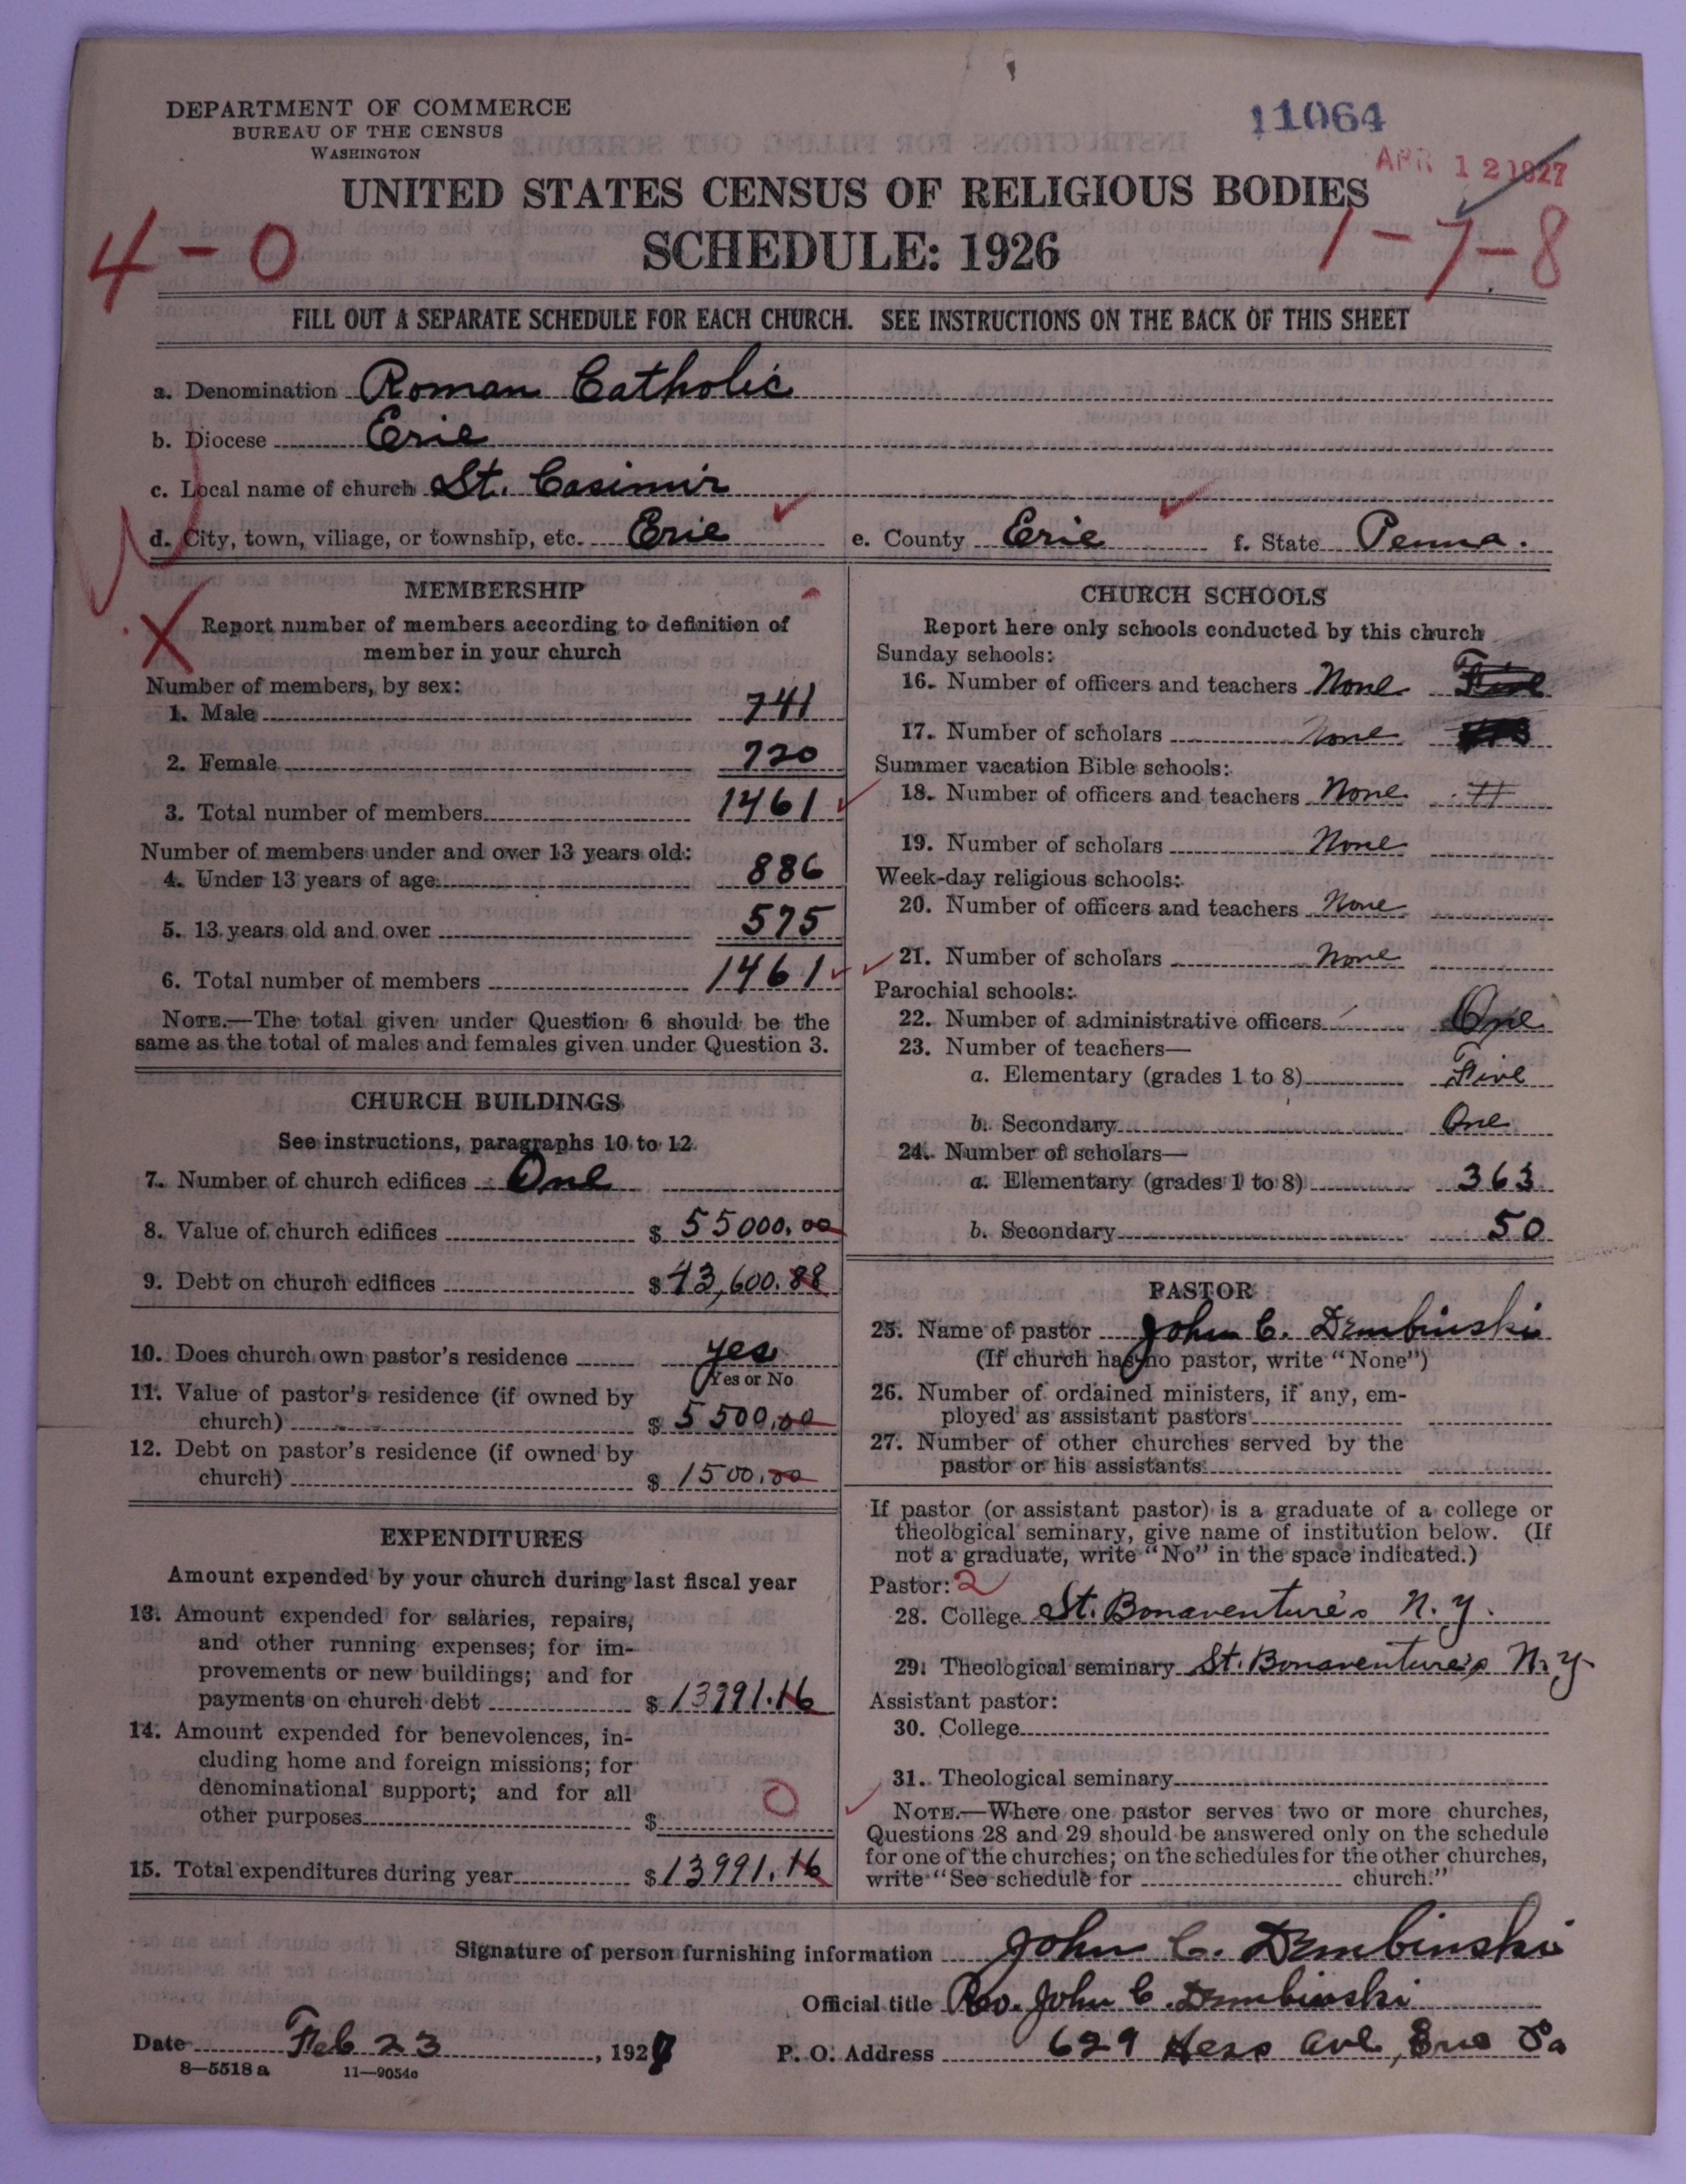 DEPARTMENT OF COMMERCE
BUREAU OF THE CENSUS
WASHINGTON
11064
APR 12 1927
UNITED STATES CENSUS OF RELIGIOUS BODIES
SCHEDULE: 1926
4-0
1-7-8
FILL OUT A SEPARATE SCHEDULE FOR EACH CHURCH. SEE INSTRUCTIONS ON THE BACK OF THIS SHEET
a. Denomination Roman Catholic
b. Diocese Erie
c. Local name of church St. Casimir
d. City, town, village, or township, etc. Erie e. County Erie f. State Penna.
MEMBERSHIP
Report number of members according to definition of
member in your church
Number of members, by sex:
1. Male 741
2. Female 720
3. Total number of members 1461
Number of members under and over 13 years old:
4. Under 13 years of age 886
5. 13 years old and over 575
6. Total number of members 1461
NOTE.—The total given under Question 6 should be the
same as the total of males and females given under Question 3.
CHURCH BUILDINGS
See instructions, paragraphs 10 to 12
7. Number of church edifices One
8. Value of church edifices $ 55000.00
9. Debt on church edifices $ 43,600.88
10. Does church own pastor's residence yes
Yes or No
11. Value of pastor's residence (if owned by
church) $ 5500.00
12. Debt on pastor's residence (if owned by
church) $ 1500.00
EXPENDITURES
Amount expended by your church during last fiscal year
13. Amount expended for salaries, repairs,
and other running expenses; for im-
provements or new buildings; and for
payments on church debt $ 13991.16
14. Amount expended for benevolences, in-
cluding home and foreign missions; for
denominational support; and for all
other purposes $ 0
15. Total expenditures during year $ 13991.16
CHURCH SCHOOLS
Report here only schools conducted by this church
Sunday schools:
16. Number of officers and teachers None Five
17. Number of scholars None
Summer vacation Bible schools:
18. Number of officers and teachers None
19. Number of scholars None
Week-day religious schools:
20. Number of officers and teachers None
21. Number of scholars None
Parochial schools:
22. Number of administrative officers One
23. Number of teachers—
a. Elementary (grades 1 to 8) Five
b. Secondary One
24. Number of scholars—
a. Elementary (grades 1 to 8) 363
b. Secondary 50
PASTOR
25. Name of pastor John C. Dembinski
(If church has no pastor, write "None")
26. Number of ordained ministers, if any, em-
ployed as assistant pastors
27. Number of other churches served by the
pastor or his assistants
If pastor (or assistant pastor) is a graduate of a college or
theological seminary, give name of institution below. (If
not a graduate, write "No" in the space indicated.)
Pastor: 2
28. College St. Bonaventure's N.Y.
29. Theological seminary St. Bonaventure's N.Y
Assistant pastor:
30. College
31. Theological seminary
NOTE.—Where one pastor serves two or more churches,
Questions 28 and 29 should be answered only on the schedule
for one of the churches; on the schedules for the other churches,
write "See schedule for church."
Signature of person furnishing information John C. Dembinski
Official title Rev. John C. Dembinski
Date Feb 23, 1927 P. O. Address 629 Hess Ave, Erie Pa
8—5518 a 11—9054c